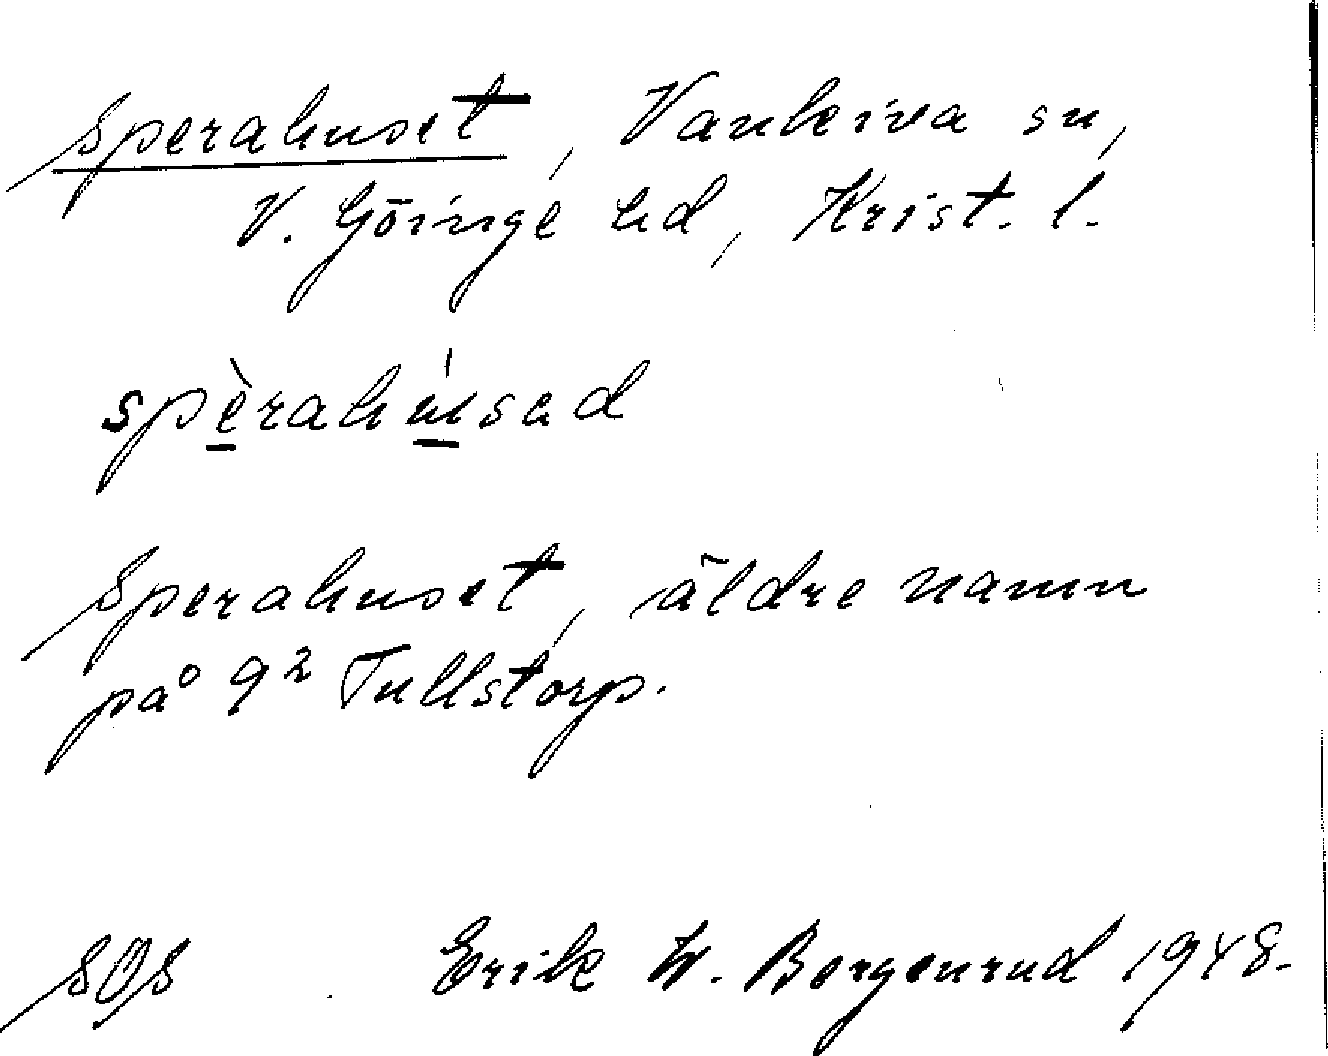 Sperahuset, Vankiva sn,
V. Göinge hd, Krist. l.
spèrahúsad
Sperahuset, äldre namn
på 9² Tullstorp.
SOS Erik W. Borgenrud 1948.